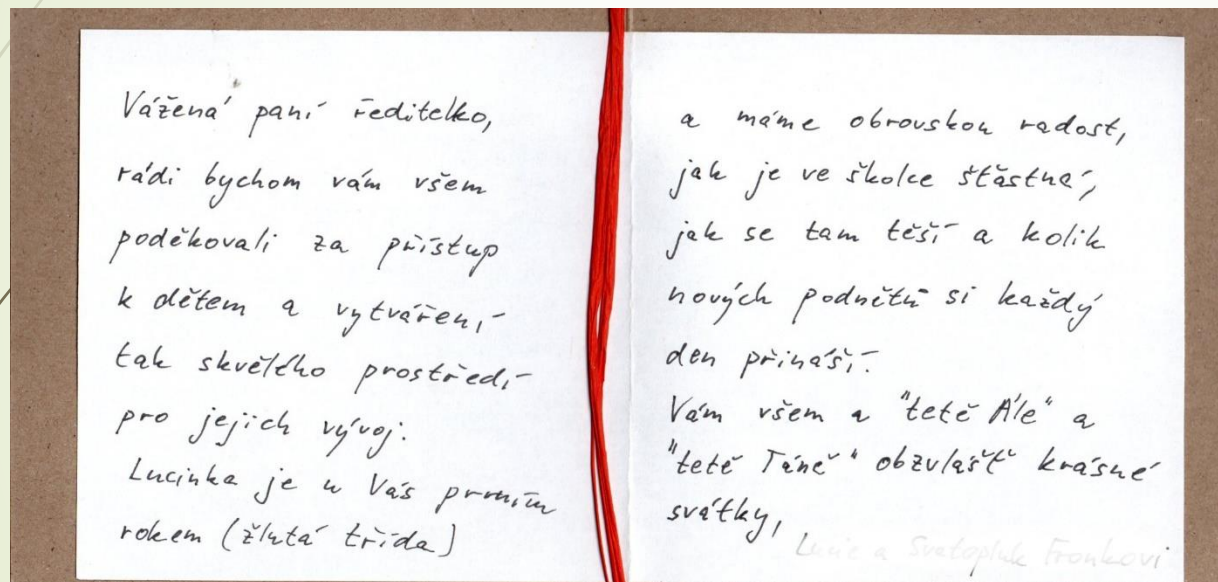 Vážená paní ředitelko,
rádi bychom vám všem
poděkovali za přístup
k dětem a vytváření
tak skvělého prostředí
pro jejich vývoj.
Lucinka je u Vás prvním
rokem (žlutá třída)
a máme obrovskou radost,
jak je ve školce šťastná,
jak se tam těší a kolik
nových podnětů si každý
den přináší.
Vám všem a "tetě Ále" a
"tetě Táně" obzvlášť krásné
svátky,
Lucie a Svatopluk Fronkovi